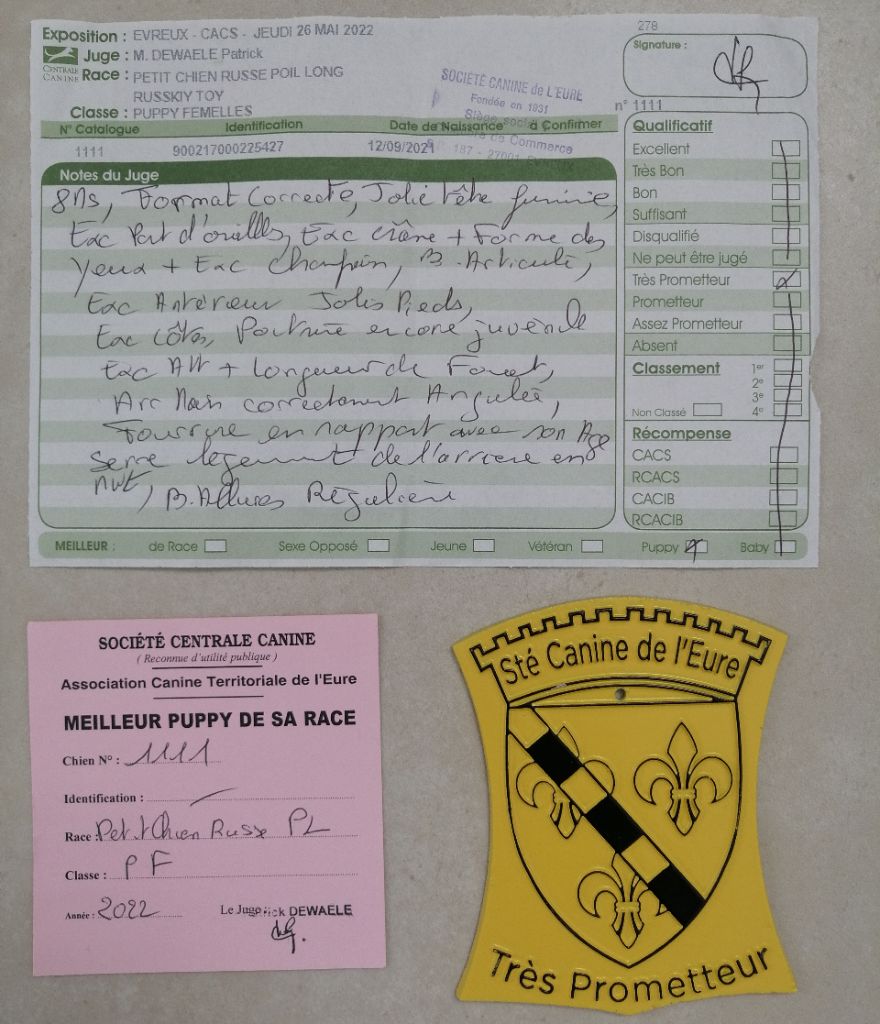 Exposition : EVREUX - CACS - JEUDI 26 MAI 2022
278
CENTRALE CANINE
Juge : M. DEWAELE Patrick
Signature :
Race : PETIT CHIEN RUSSE POIL LONG
RUSSKIY TOY
SOCIÉTÉ CANINE de L'EURE
Fondée en 1931
Siège social
de Commerce
187 - 27001
n° 1111
Classe : PUPPY FEMELLES
N° Catalogue Identification Date de Naissance à Confirmer
1111 900217000225427 12/09/2021
Notes du Juge
Format Correcte, Jolie tête
Exc Port d'oreilles, Exc crâne + Forme des
Yeux + Exc B. Articulé,
Exc Antérieur Jolis Pieds,
Exc côtes, Poitrine encore juvénile
Exc Att + Longueur de Fouet,
Arr Main correctement Angulée,
Fourrure en rapport avec son Age
Serre legerement de l'arriere en
mvt, B. Allures Régulière
Qualificatif
Excellent
Très Bon
Bon
Suffisant
Disqualifié
Ne peut être jugé
Très Prometteur
Prometteur
Assez Prometteur
Absent
Classement 1er
2e
3e
Non Classé 4e
Récompense
CACS
RCACS
CACIB
RCACIB
MEILLEUR : de Race Sexe Opposé Jeune Vétéran Puppy Baby
SOCIÉTÉ CENTRALE CANINE
( Reconnue d'utilité publique )
Association Canine Territoriale de l'Eure
MEILLEUR PUPPY DE SA RACE
Chien N° : 1111
Identification :
Race : Petit Chien Russe PL
Classe : PF
Année : 2022
Le Juge : rick DEWAELE
Sté Canine de l'Eure
Très Prometteur